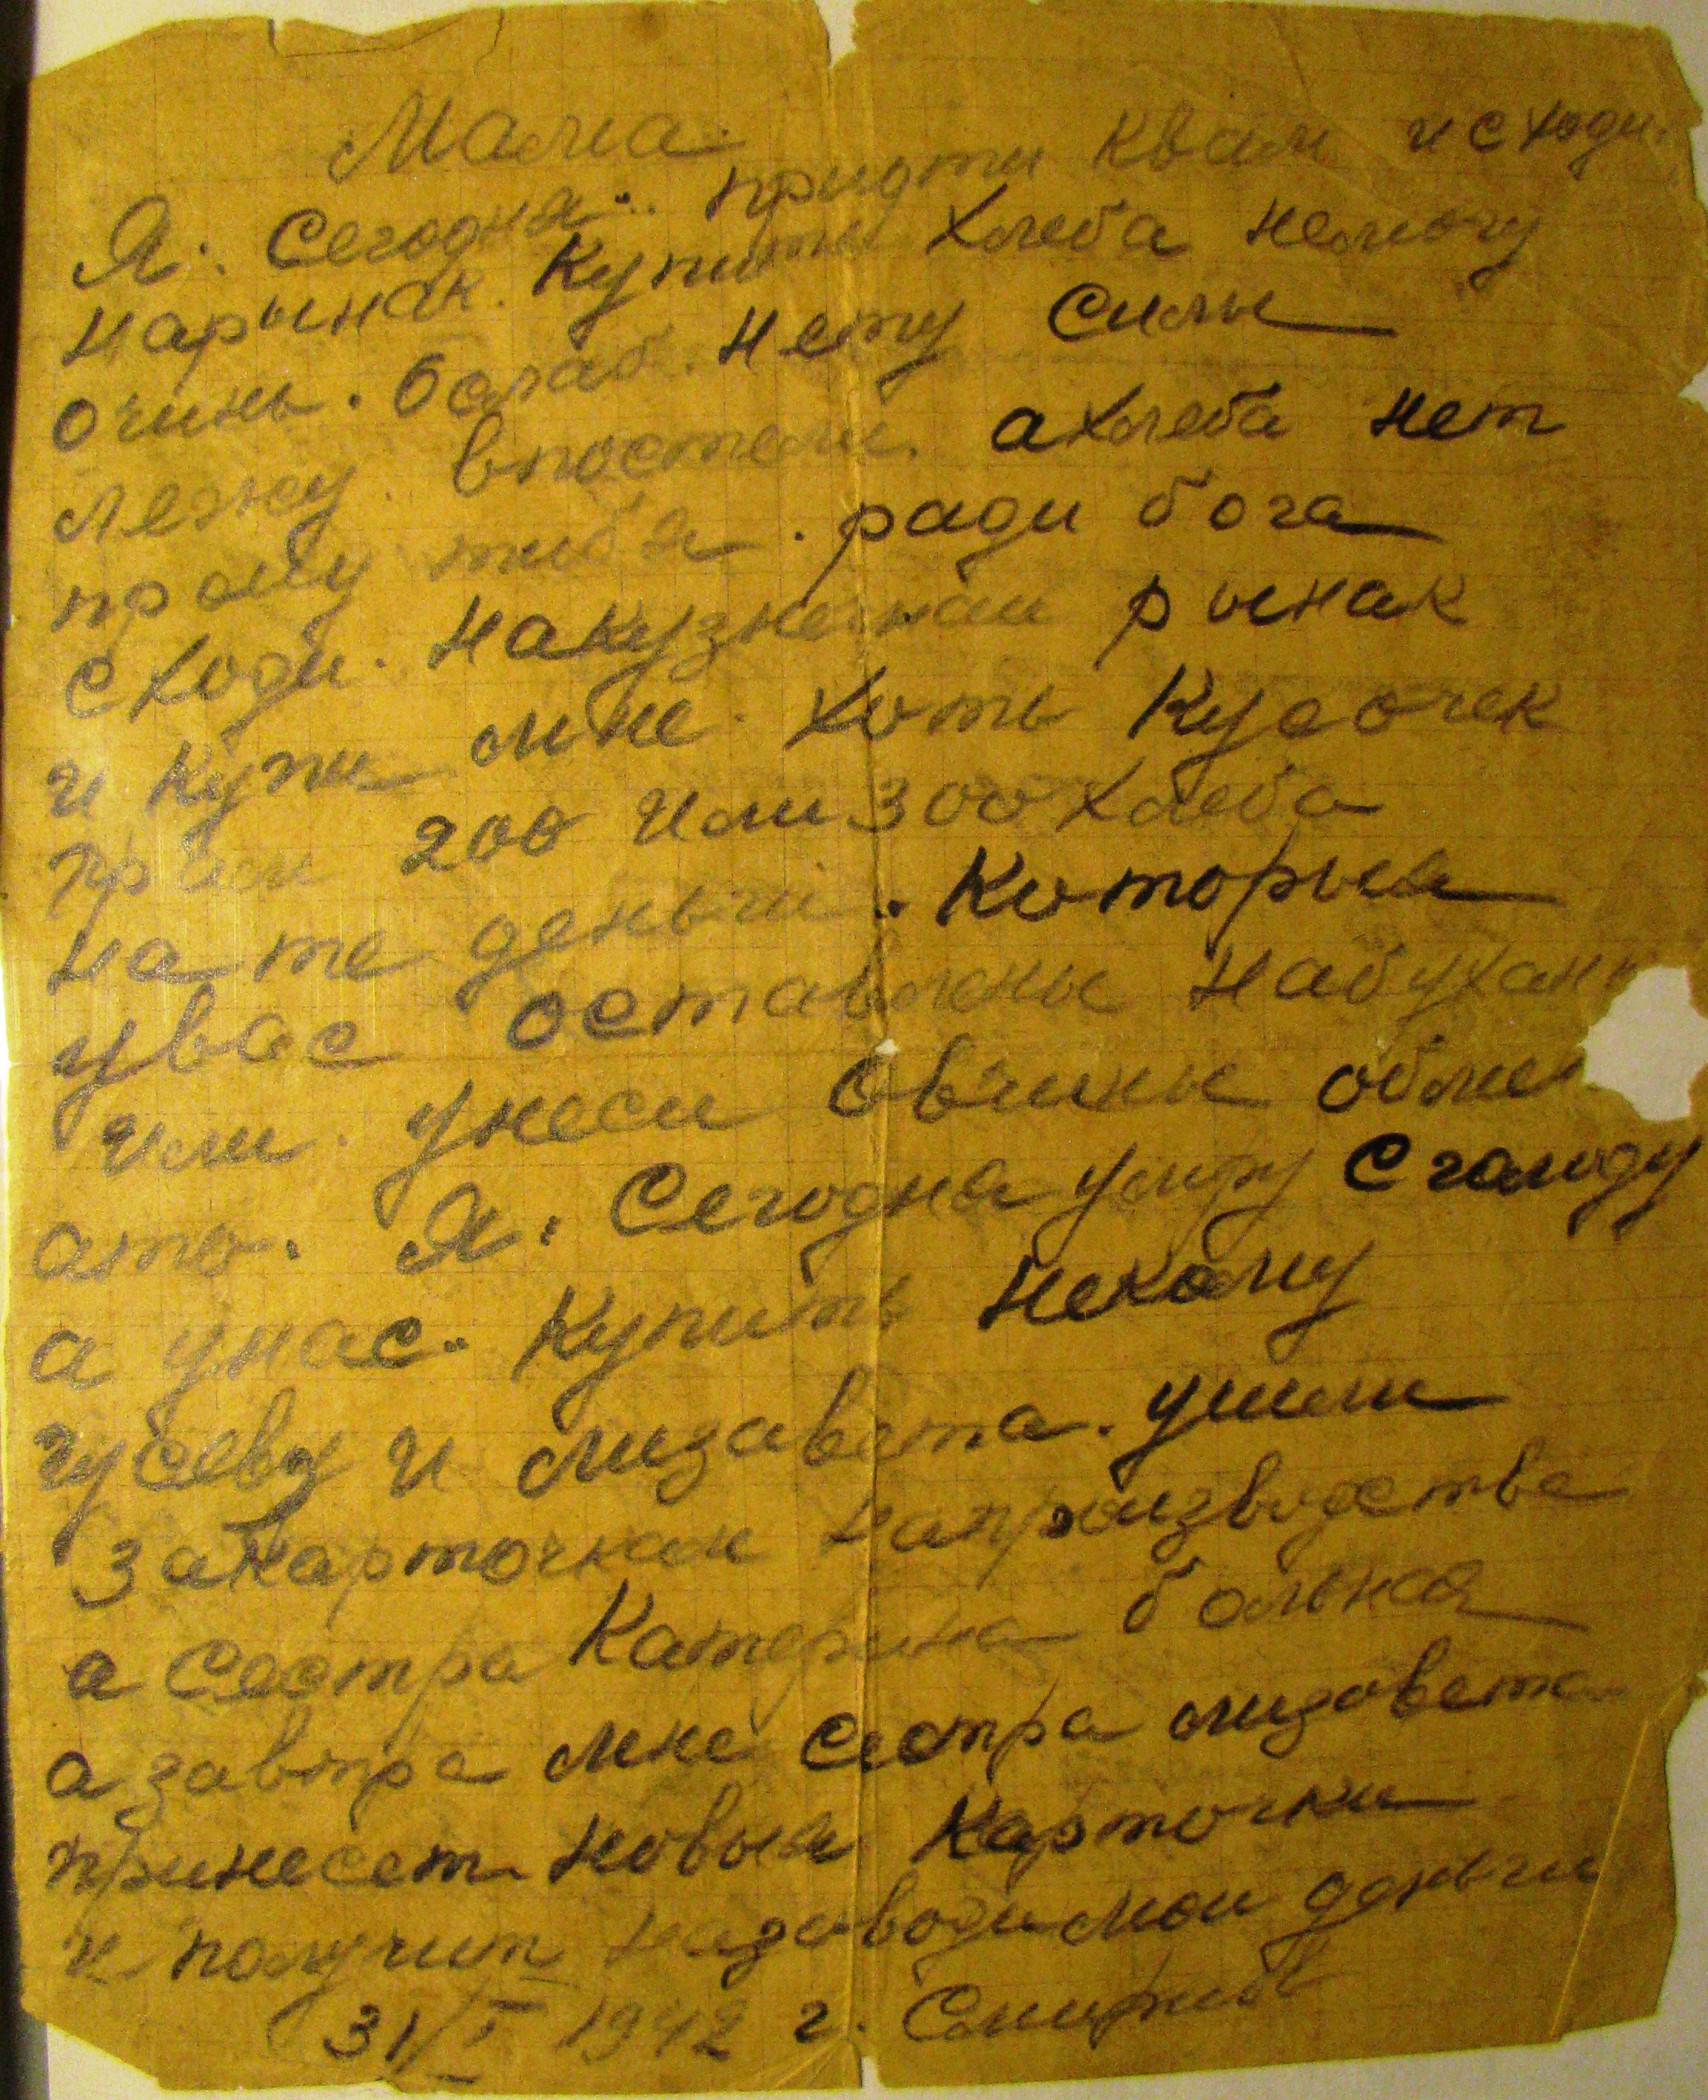 Мама
Я. Сегодня.. придти квам и сходи
нарынак. Купити хлеба немогу
очинь. Ослаб. нету силы
лежу. впостели. ахлеба нет
прошу тибя. ради бога
сходи. накузнечнай рынак
и купи мне. хоть кусочек
грам 200 или 300 хлеба
на те деньги. Которыя
увас оставлены
или. унеси овчины
ато. Я. Сегодна умру Сгалоду
а унас. Купить некаму
и лизавета. ушли
закарточкам напроизводства
а Сестра Катерина больная
а завтра мне Сестра лизовета
принесет новыя карточки
и получит назаводи мои деньги
31/I 1942 г.